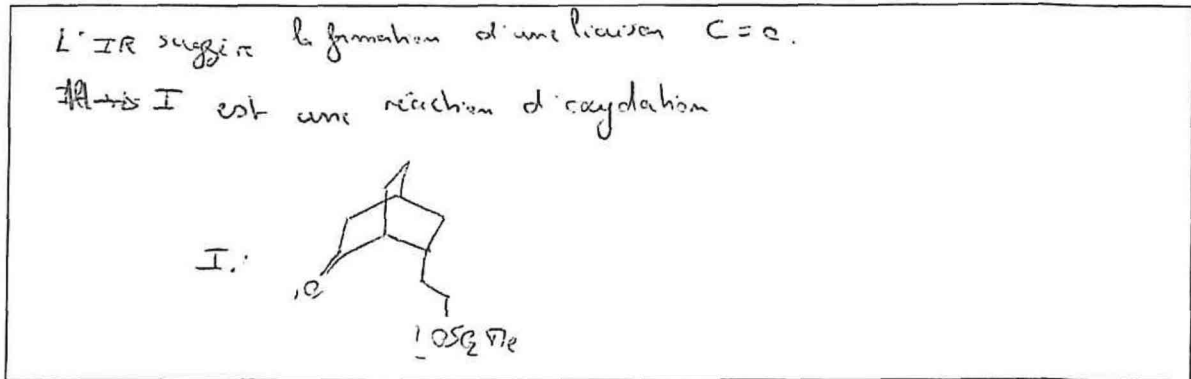 L'IR suggère la formation d'une liaison C=O.
I est une réaction d'oxydation
I:
O
OSO2Me